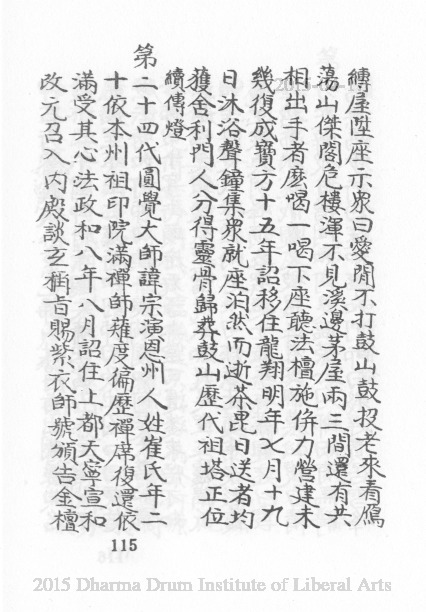 縛屋陞座示眾曰愛閒不打鼓山鼓投老來看鴈
蕩山傑閣危樓渾不見溪邊茅屋兩三間還有共
相出手者麼喝一喝下座聽法檀施併力營建未
幾復成寶方十五年詔移住龍翔明年七月十九
日沐浴聲鐘集眾就座泊然而逝茶毘日送者均
獲舍利門人分得靈骨歸葬鼓山歷代祖塔正位
續傳燈
第二十四代圓覺大師諱宗演恩州人姓崔氏年二
十依本州祖印院滿禪師薙度徧歷禪席復還依
滿受其心法政和八年八月詔住上都大寧宣和
改元召入內殿談玄稱旨賜紫衣師號頒告金檀
115
2015 Dharma Drum Institute of Liberal Arts